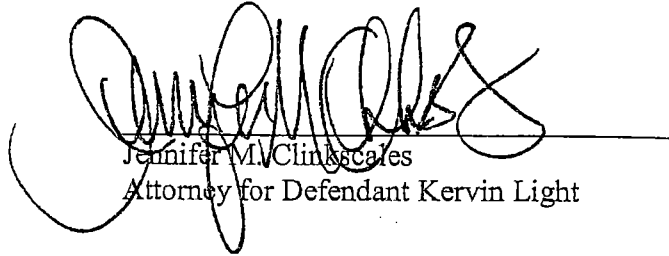 Jennifer M. Clinkscales
Attorney for Defendant Kervin Light